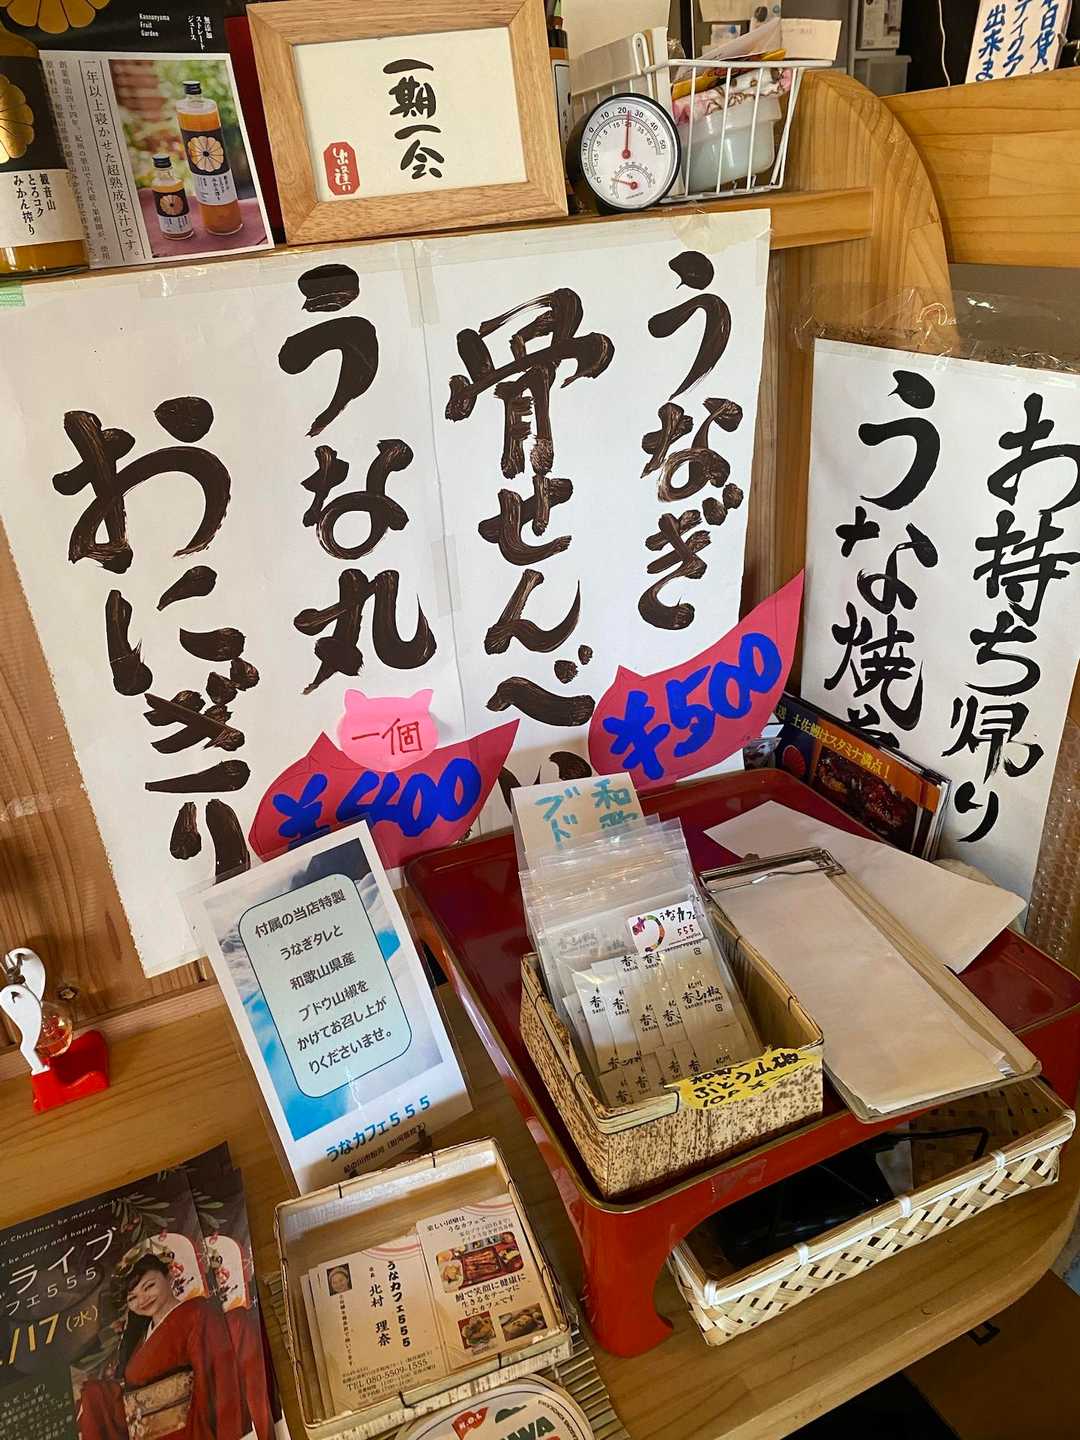 Kannonyama
Fruit
Garden
無添加
ストレート
ジュース
一年以上寝かせた超熟成果汁です。
観音山
とろコク
みかん搾り
一期
一会
出逢い
うなぎ
骨せんべい
¥500
うな丸
おにぎり
一個
¥400
お持ち帰り
うな焼
出来ま
土佐鰻はスタミナ満点！
和歌
ブド
付属の当店特製
うなぎタレと
和歌山県産
ブドウ山椒を
かけてお召し上が
りくださいませ。
うなカフェ５５５
うなカフェ
555
香山椒
Sansho Powder
ぶどう山椒
楽しい団欒は
うなカフェで
鰻で笑顔に健康に
生きるをテーマに
したカフェです
うなカフェ５５５
店長 北村 理奈
TEL 080-5509-1555
be merry and happy
ライブ
フェ５５５
/17(水)